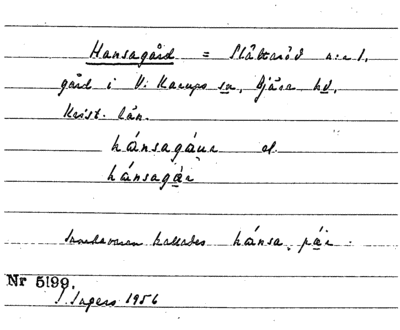 Hansagård = Slättaröd n:r 1.
gård i V. Karups sn, Bjäre hd,
Krist. län.
hánsagáur el.
hánsagår
kallades hánsa pår.
Nr 5199.
I. Ingers 1956